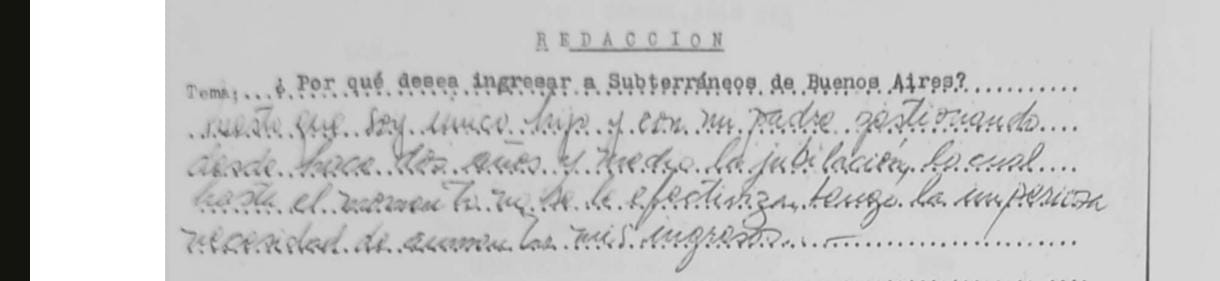 REDACCION
Tema: ¿Por qué desea ingresar a Subterráneos de Buenos Aires?
Puesto que soy único hijo y con mi padre gestionando
desde hace dos años y medio la jubilación, la cual
hasta el momento no se le efectiviza, tengo la imperiosa
necesidad de aumentar mis ingresos.—